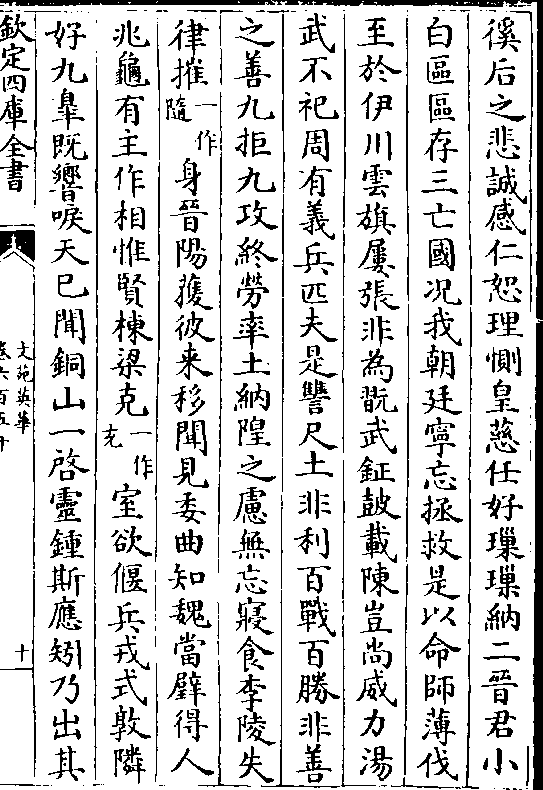 徯后之悲誠感仁恕理惻皇慈任好璅璅納二晉君小
白區區存三亡國况我朝廷寧忘拯救是以命師薄伐
至於伊川雲旗屢張非為翫武鉦鼓載陳豈尚威力湯
武不祀周有義兵匹夫是讐尺土非利百戰百勝非善
之善九拒九攻終勞率土納隍之慮無忘寢食李陵失
律摧一作隨身晉陽獲彼来移聞見委曲知魏當璧得人
兆龜有主作相惟賢棟梁克一作充室欲偃兵戎式敦隣
好九臯既響唳天已聞銅山一啓靈鍾斯應矧乃出其
欽定四庫全書
文苑英華
卷六百五十
十